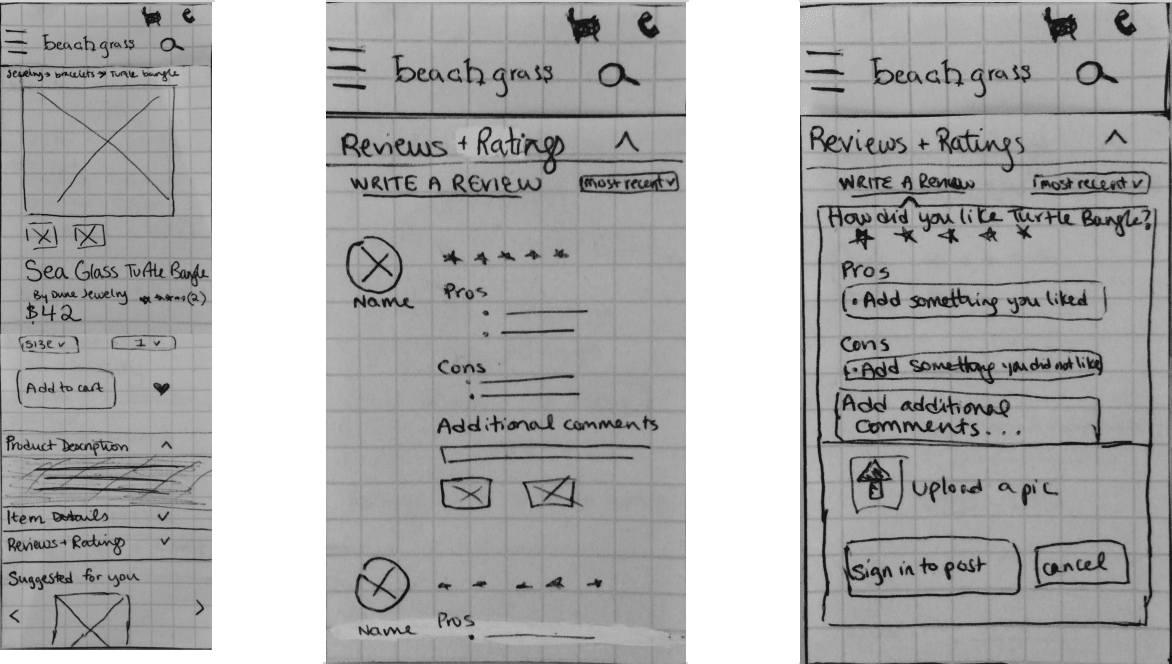 beachgrass
Jewelry > bracelets > Turtle bangle
Sea Glass Turtle Bangle
By Dune Jewelry (2)
$42
size 1
Add to cart
Product Description
Item Details
Reviews + Ratings
Suggested for you
beachgrass
Reviews + Ratings
WRITE A REVIEW most recent
Name
Pros
Cons
Additional comments
Name
Pros
beachgrass
Reviews + Ratings
WRITE A REVIEW most recent
How did you like Turtle Bangle?
Pros
• Add something you liked
Cons
• Add something you did not like
Add additional
comments...
Upload a pic
Sign in to post cancel